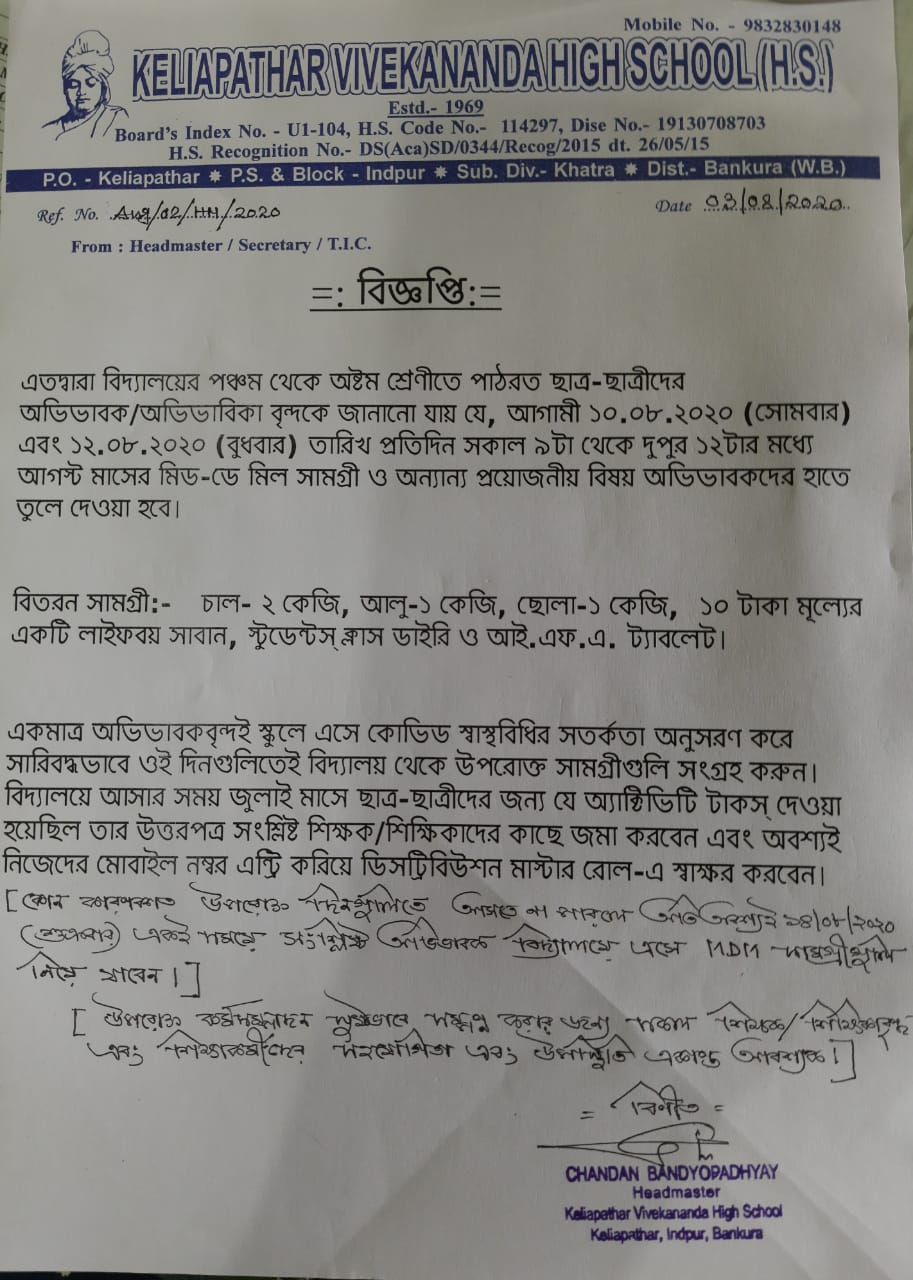 Mobile No. - 9832830148
KELIAPATHAR VIVEKANANDA HIGH SCHOOL (H.S.)
Estd.- 1969
Board's Index No. - U1-104, H.S. Code No.- 114297, Dise No.- 19130708703
H.S. Recognition No.- DS(Aca)SD/0344/Recog/2015 dt. 26/05/15
P.O. - Keliapathar ✷ P.S. & Block - Indpur ✷ Sub. Div.- Khatra ✷ Dist.- Bankura (W.B.)
Ref. No. Aug/02/HM/2020 Date 03/08/2020
From : Headmaster / Secretary / T.I.C.
=: বিজ্ঞপ্তি:=
এতদ্বারা বিদ্যালয়ের পঞ্চম থেকে অষ্টম শ্রেণীতে পাঠরত ছাত্র-ছাত্রীদের
অভিভাবক/অভিভাবিকা বৃন্দকে জানানো যায় যে, আগামী ১০.০৮.২০২০ (সোমবার)
এবং ১২.০৮.২০২০ (বুধবার) তারিখ প্রতিদিন সকাল ৯টা থেকে দুপুর ১২টার মধ্যে
আগস্ট মাসের মিড-ডে মিল সামগ্রী ও অন্যান্য প্রয়োজনীয় বিষয় অভিভাবকদের হাতে
তুলে দেওয়া হবে।
বিতরন সামগ্রী:- চাল- ২ কেজি, আলু-১ কেজি, ছোলা-১ কেজি, ১০ টাকা মূল্যের
একটি লাইফবয় সাবান, স্টুডেন্টস্ ক্লাস ডাইরি ও আই.এফ.এ. ট্যাবলেট।
একমাত্র অভিভাবকবৃন্দই স্কুলে এসে কোভিড স্বাস্থবিধির সতর্কতা অনুসরণ করে
সারিবদ্ধভাবে ওই দিনগুলিতেই বিদ্যালয় থেকে উপরোক্ত সামগ্রীগুলি সংগ্রহ করুন।
বিদ্যালয়ে আসার সময় জুলাই মাসে ছাত্র-ছাত্রীদের জন্য যে অ্যাক্টিভিটি টাকস্ দেওয়া
হয়েছিল তার উত্তরপত্র সংশ্লিষ্ট শিক্ষক/শিক্ষিকাদের কাছে জমা করবেন এবং অবশ্যই
নিজেদের মোবাইল নম্বর এন্ট্রি করিয়ে ডিসট্রিবিউশন মাস্টার রোল-এ স্বাক্ষর করবেন।
[কোন কারণবশত উপরোক্ত দিনগুলিতে আসতে না পারলে অতি অবশ্যই ১৪/০৮/২০২০
(শুক্রবার) একই সময়ে সংশ্লিষ্ট অভিভাবক বিদ্যালয়ে এসে MDM সামগ্রীগুলি
নিয়ে যাবেন।]
[উপরোক্ত কর্মসম্পাদন সুষ্ঠভাবে সম্পন্ন করার জন্য সকল শিক্ষক/শিক্ষিকাবৃন্দ
এবং শিক্ষাকর্মীদের সহযোগিতা এবং উপস্থিতি একান্ত আবশ্যক।]
= বিনীত =
CHANDAN BANDYOPADHYAY
Headmaster
Keliapathar Vivekananda High School
Keliapathar, Indpur, Bankura